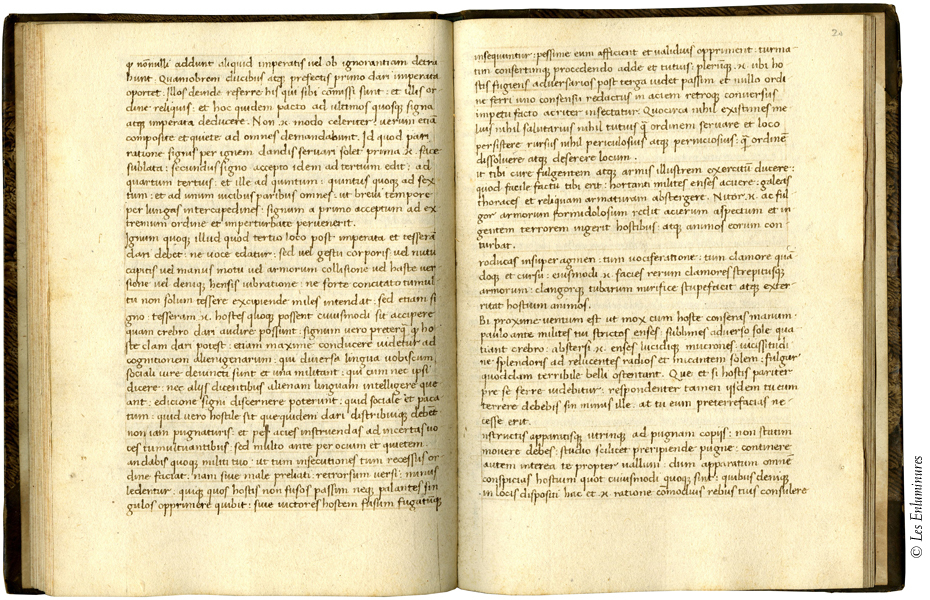 nonnulli addunt aliquid imperatis vel ob ignorantiam detra
hunt. Quamobrem ducibus atq; prefectis primo dari imperata
oportet: Illos deinde referre his qui sibi commissi sunt: et illos or
dine reliquis: et hoc quidem pacto ad ultimos quosq; signa
atq; imperata deducere. Non modo celeriter: verum etiã
composite et quiete ad omnes demandabunt. Id quod pari
ratione signis per ignem dandis servari solet prima face
sublata: secundus signo accepto idem ad tertium edit: ad
quartum tertius: et ille ad quintum: quintus quoq; ad sex
tum: et ad unum vicibus paribus omnes: ut brevi tempore
per longas intercapedines: signum a primo acceptum ad ex
tremum ordine et imperturbate pervenerit.
Ignum quoq; illud quod tertio loco post imperata et tesserã
dari debet: ne voce edatur: sed vel gestu corporis vel nutu
capitis vel manus motu vel armorum collisione vel haste ver
sione vel deniq; hensis vibratione: ne forte concitato tumul
tu non solum tessere excipiende miles intendat: sed etiam si
gno: tesseram hostes quoq; possent cuiusmodi sit accipere
quam crebro dari audire possunt: signum vero preterq; ho
ste clam dari potest: etiam maxime conducere videtur ad
cognitionem alienigenarum: qui diversa lingua vobiscum
sociali iure devincti sunt et una militant: qui cum nec ipsi
dicere: nec aliis dicentibus alienam linguam intelligere que
ant: edicione signi discernere poterunt: quid sociale et paca
tum: quid vero hostile sit que quidem dari distribuiq; debẽt
non iam pugnaturis: et acies instruendas ad incertas vo
ces tumultuantibus sed multo ante per ocium et quietem.
andabis quoq; militi tuo: ut tum insecutiones tum recessus or
dine faciat: nam sive male preliati retrorsum versi: minus
ledentur: quicq; quos hostis non fusos passim neq; palantes sin
gulos opprimere quibit: sive victores hostem fusum fugatũq;
24
insequuntur: pessime eum afficient et validius oppriment: turma
tim confertimq; procedendo adde et tutius: plerunq; ubi ho
stis fugiens adversarios post terga videt passim et nullo ordi
ne ferri uno consensu redactus in aciem retroq; conversus
impetu facto acriter insectatur. Quocirca nihil existimes me
lius nihil salutarius nihil tutius q̃ ordinem servare et loco
persistere rursus nihil periculosius atq; perniciosius: q̃ ordinẽ
dissolvere atq; deserere locum.
it tibi cure fulgentem atq; armis illustrem exercitũ ducere:
quod facile factu tibi erit: hortanti milites enses acuere: galeas
thoraces et reliquam armaturam abstergere. Nitor ac ful
gor armorum formidolosum reddit acierum aspectum et in
gentem terrorem ingerit hostibus: atq; animos eorum con
turbat.
roducas insuper agmen: tum vociferatione: tum clamore quã
doq; et cursu: eiusmodi facies rerum clamores strepitusq;
armorum: clangorq; tubarum mirifice stupefacit atq; exter
ritat hostium animos.
Bi proxime ventum est ut mox cum hoste conseras manum
paulo ante milites tui strictos enses: sublimes adverso sole qua
tiant crebro: abstersi enses lucidiq; mucrones: vicissitudi
ne splendoris ad relucentes radios et micantem solem: fulgur
quoddam terribile belli ostentant. Que et si hostis pariter
pre se ferre videbitur: respondenter tamen iisdem tu eum
terrere debebis sin minus ille: at tu eum preterrefacias ne
cesse erit.
nstructis apparatisq; utrinq; ad pugnam copiis: non statim
movere debes: studio scilicet preripiende pugne: continere
autem interea te propter vallum: dum apparatum omnẽ
conspicias hostium quot cuiusmodi quoq; sint: quibus deniq;
in locis dispositi hac ratione comodius rebus tuis consulere
© Les Enluminures